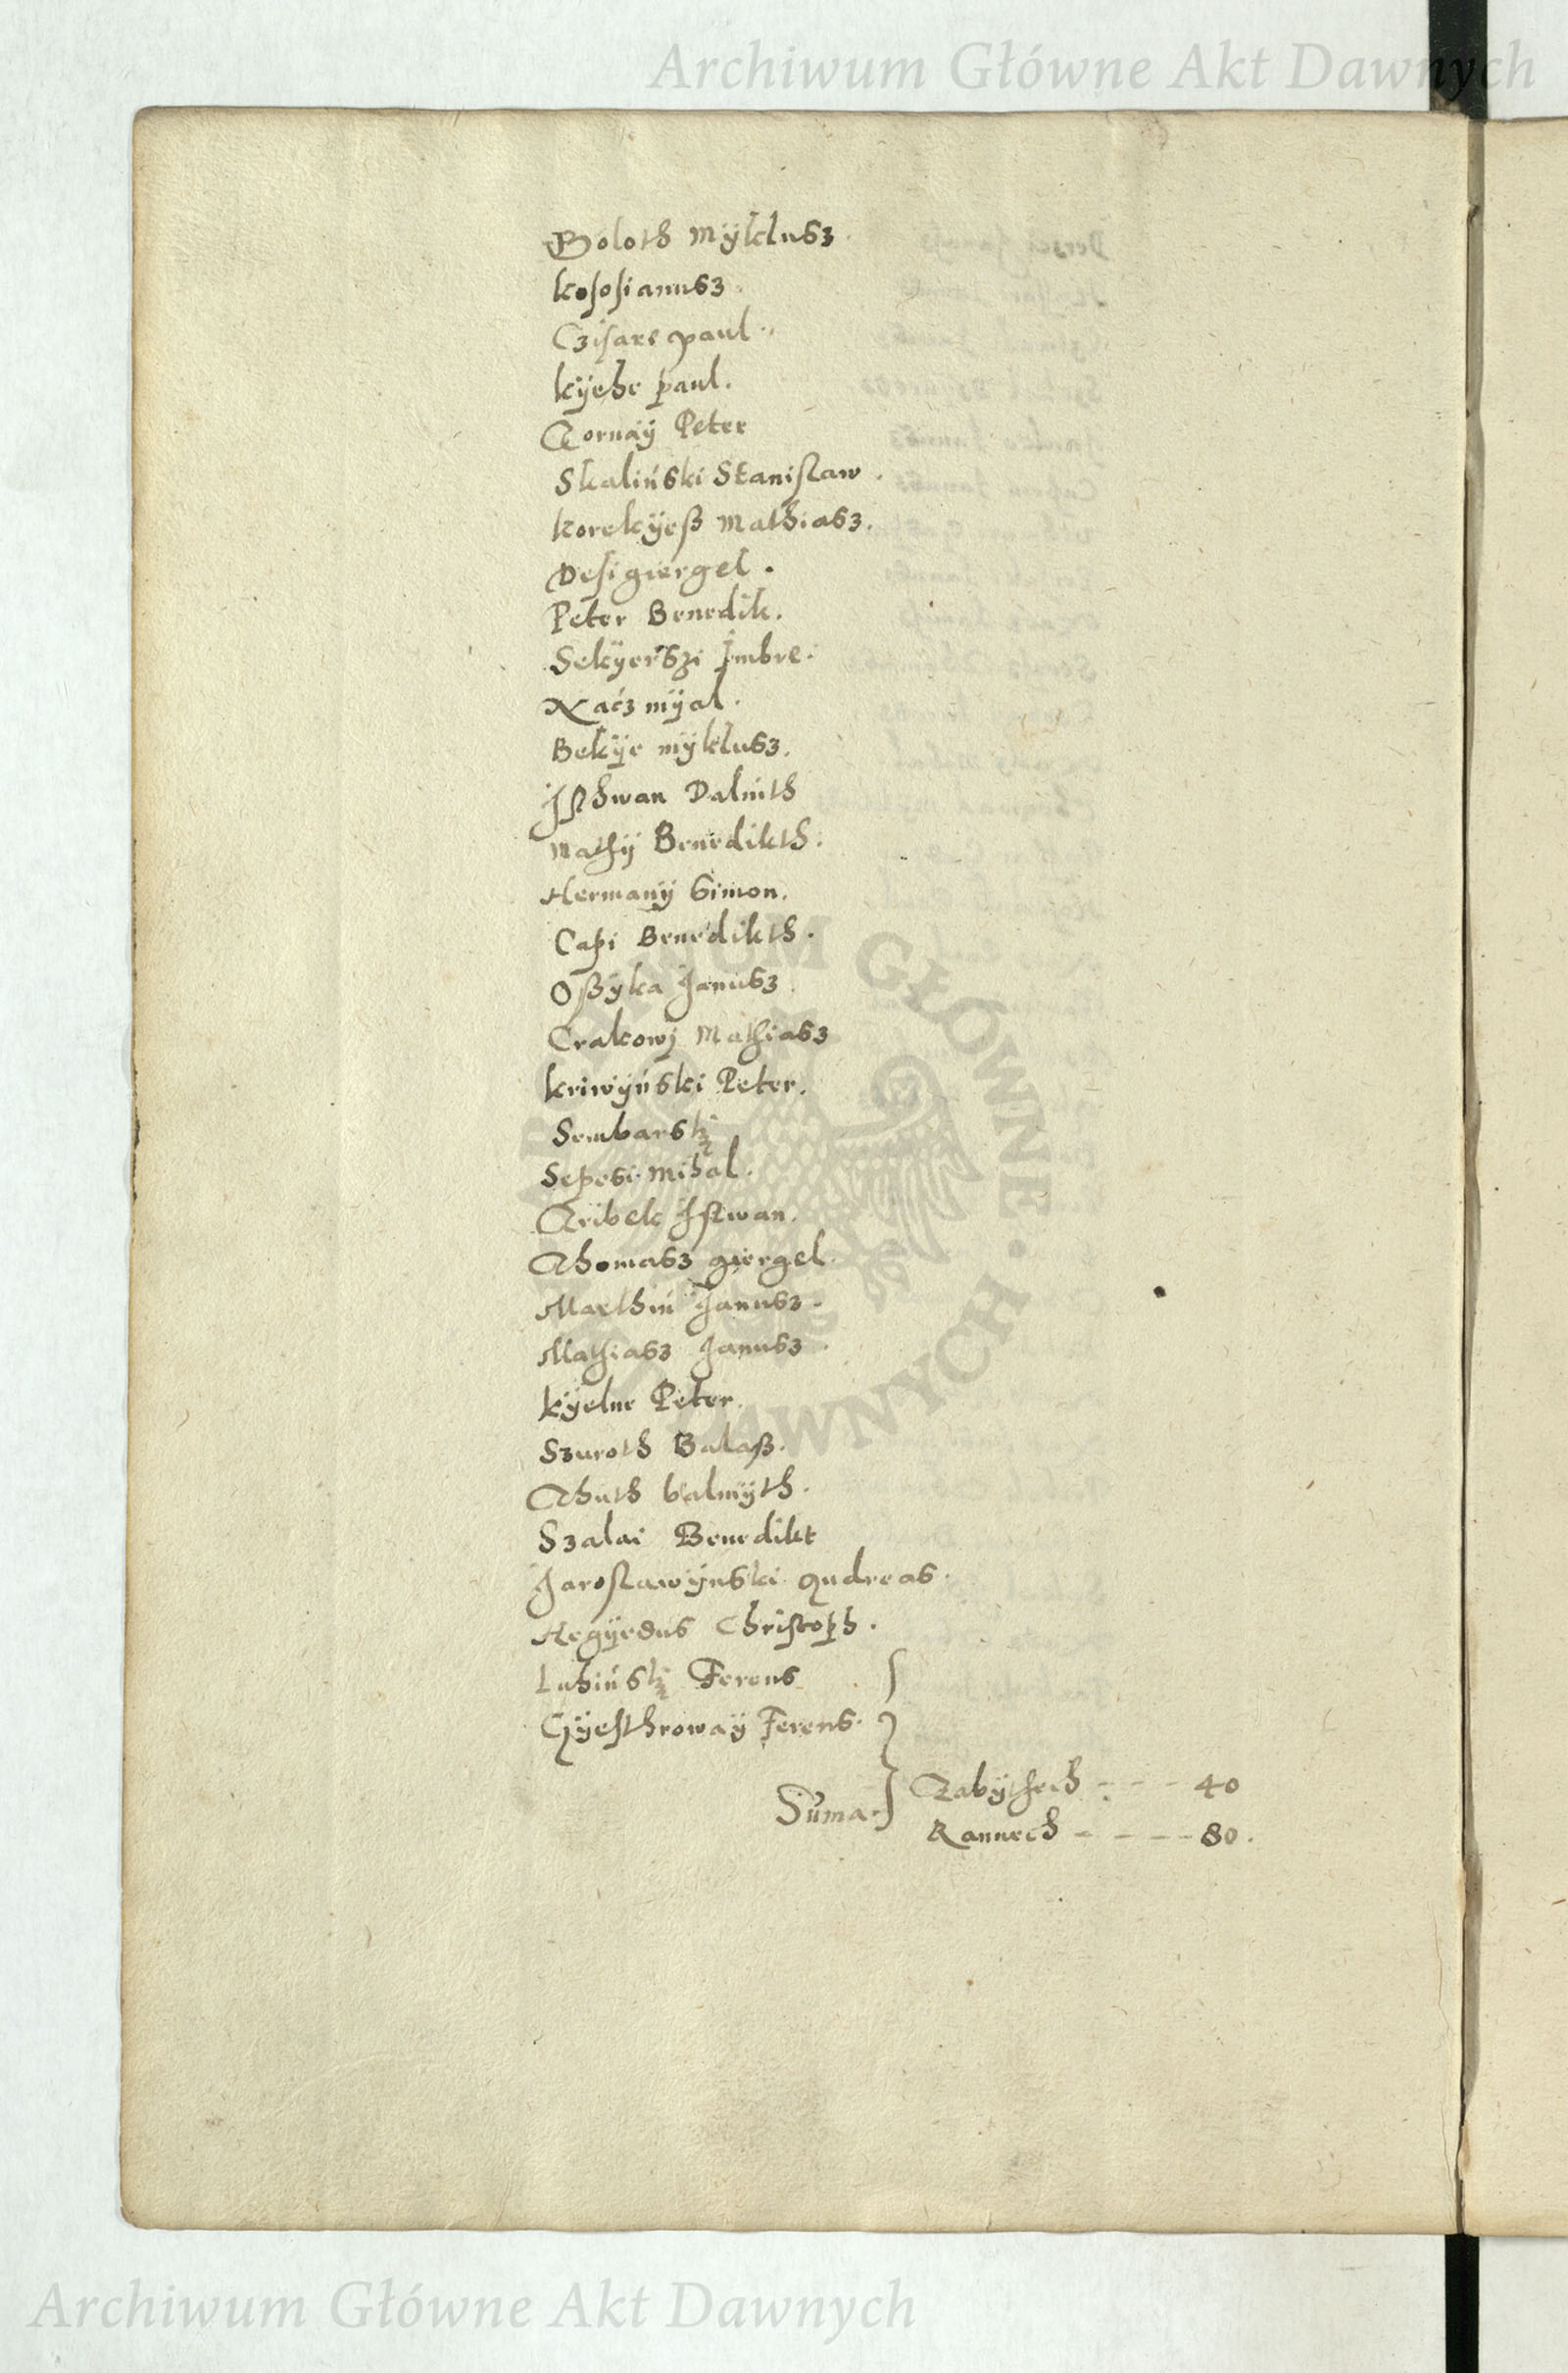 Archiwum Główne Akt Dawnych
Boloth Myklusz.
kososi anusz.
Czisare paul.
kÿehe paul.
Tornaÿ Peter
Skaliński Stanisław.
korekÿeß Mathiasz.
Desi giergel.
Peter Benedik.
Sekÿerszi Jmbre.
Naćz mÿal.
Bekÿe mÿklusz.
Jsthwan Dalnith
Mathÿ Benedikth.
Hermanÿ Simon.
Capi Benedikth.
Oßÿka Janusz.
Crakowj Mathiasz
kriwÿński Peter.
Sembarskj
Sepesi Mihal.
Tribek Jstwan.
Thomasz giergel.
Marthin Janusz.
Mathiasz Janusz.
kÿelne Peter.
Szuroth Balaß.
Thuth balmÿth.
Szalai Benedikt
Jarosławÿnski Andreas.
Hegÿedus Christoph.
Luhińskj Ferens
Gÿesthrowaÿ Ferens.
Suma. Zabÿthech - - - 40
Rannech - - - - 80.
ARCHIWUM GŁÓWNE AKT DAWNYCH
Archiwum Główne Akt Dawnych